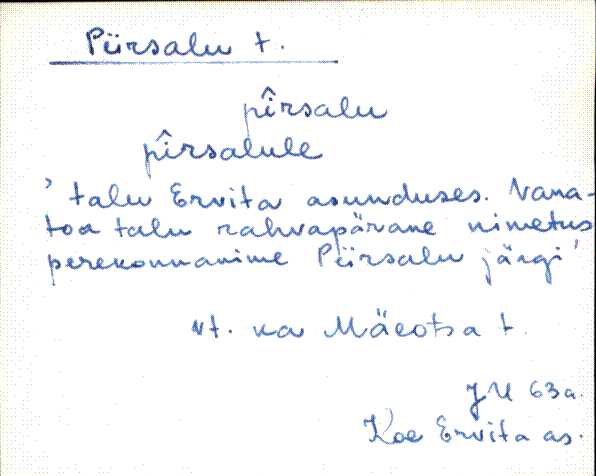 Piirsalu t.
pîrsalu
pîrsalule
' talu Ervita asunduses. Vana-
toa talu rahvapärane nimetus
perekonnanime Piirsalu järgi '
vt. ka Mäeotsa t.
63a.
Koe Ervita as.